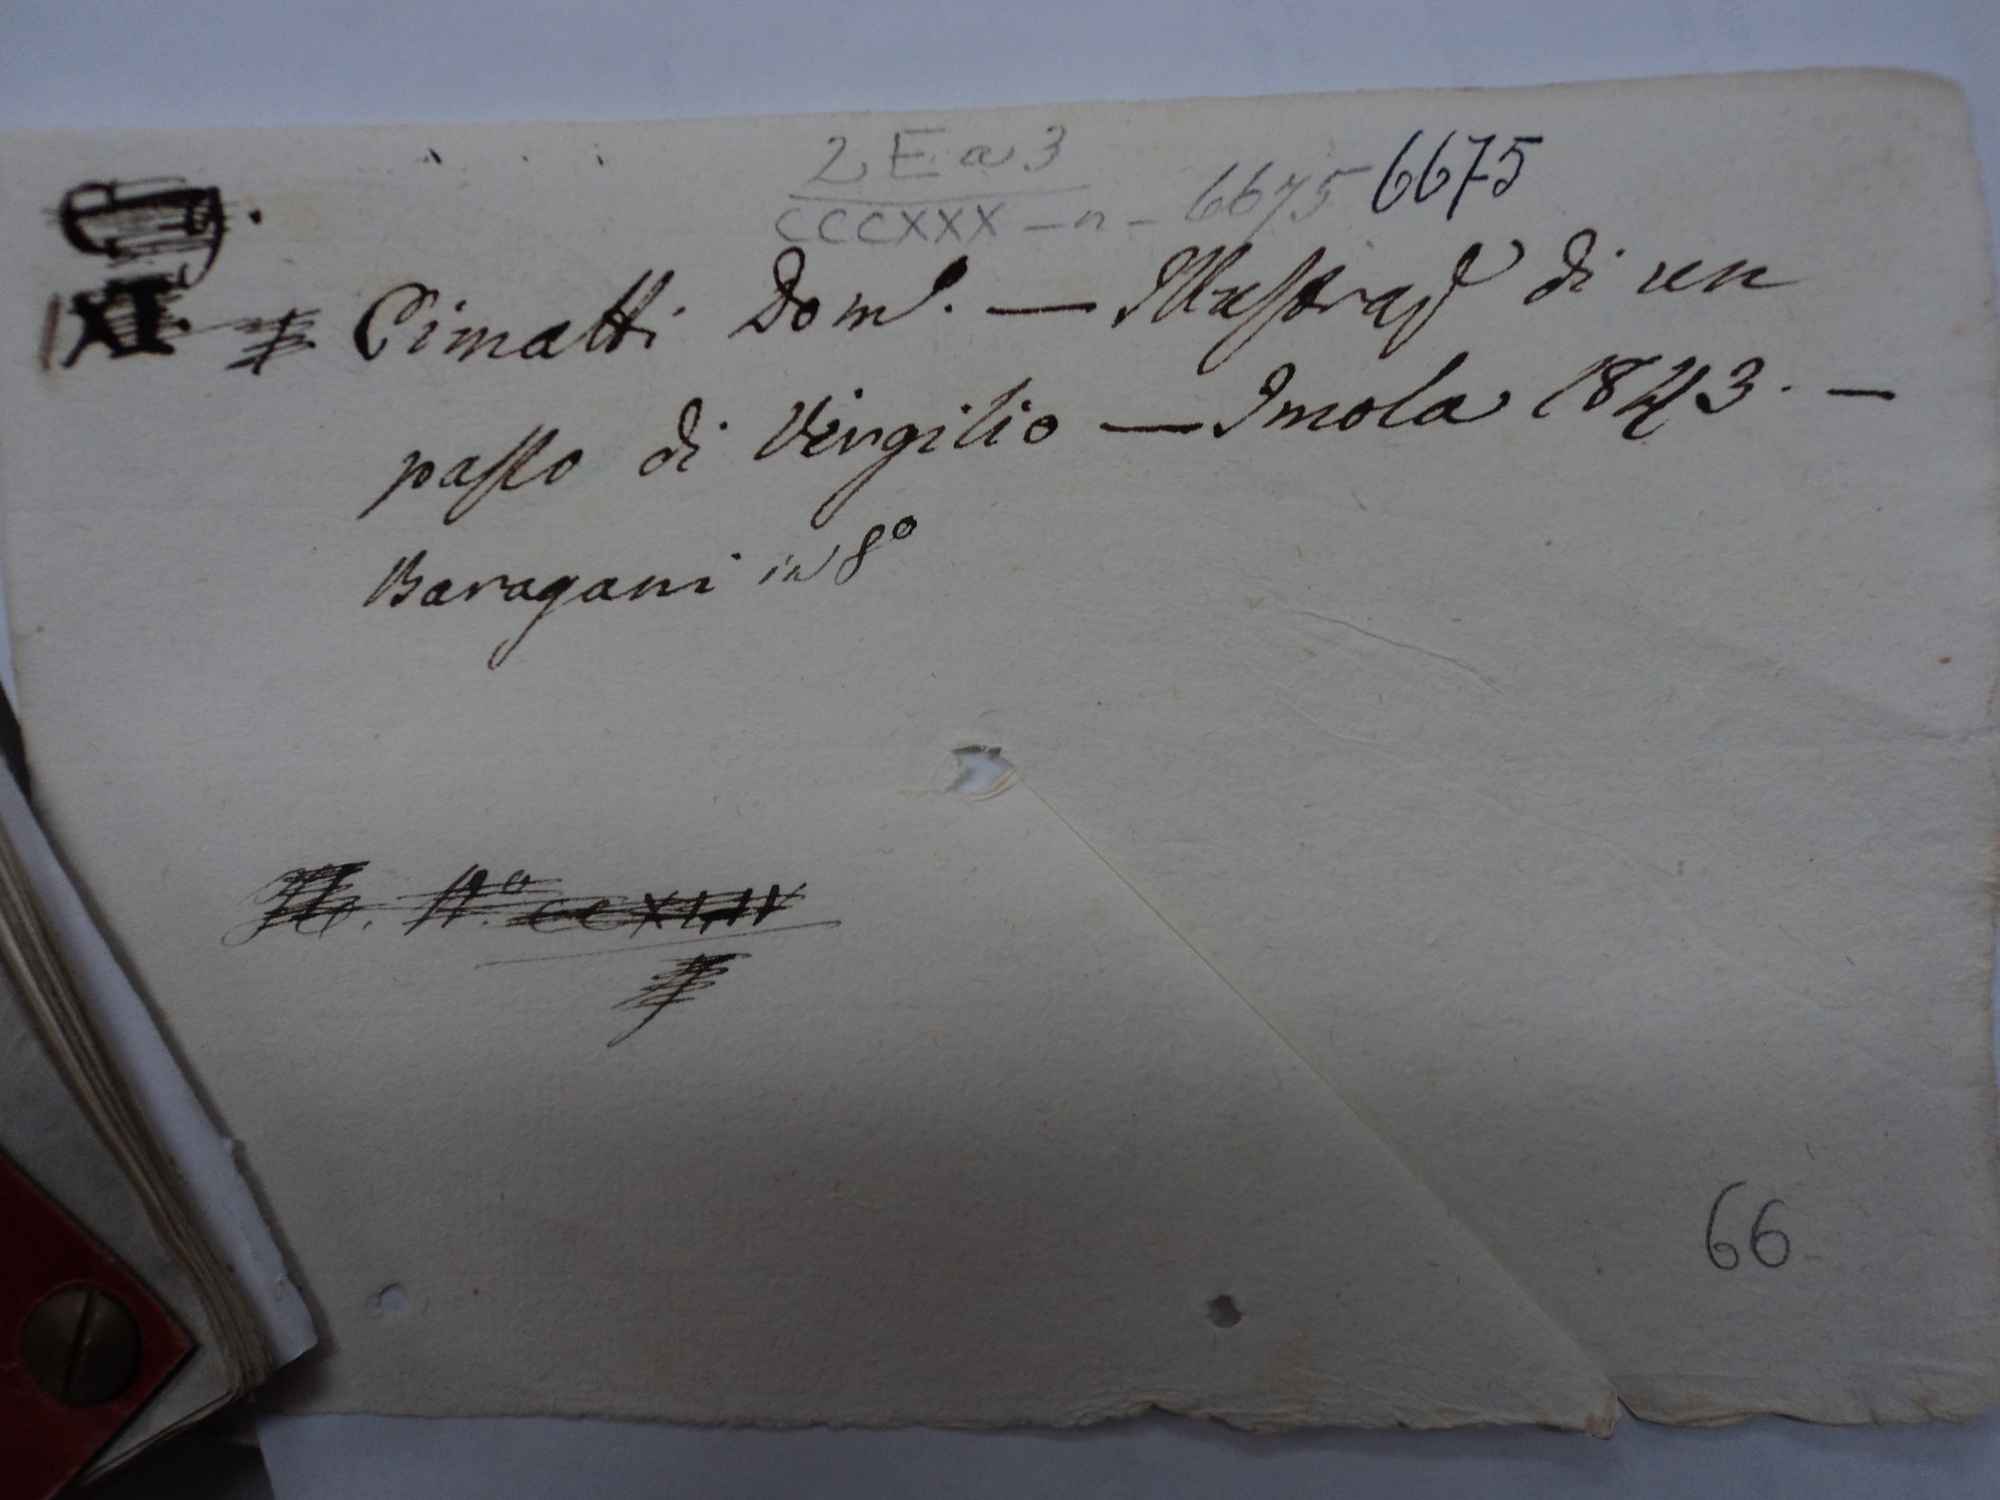 2 E a 3
CCCXXX - n - 6675 6675
XI Cimatti Dom. — di un
passo di Virgilio — Imola 1843. —
Baragani in 8º
N.º
66